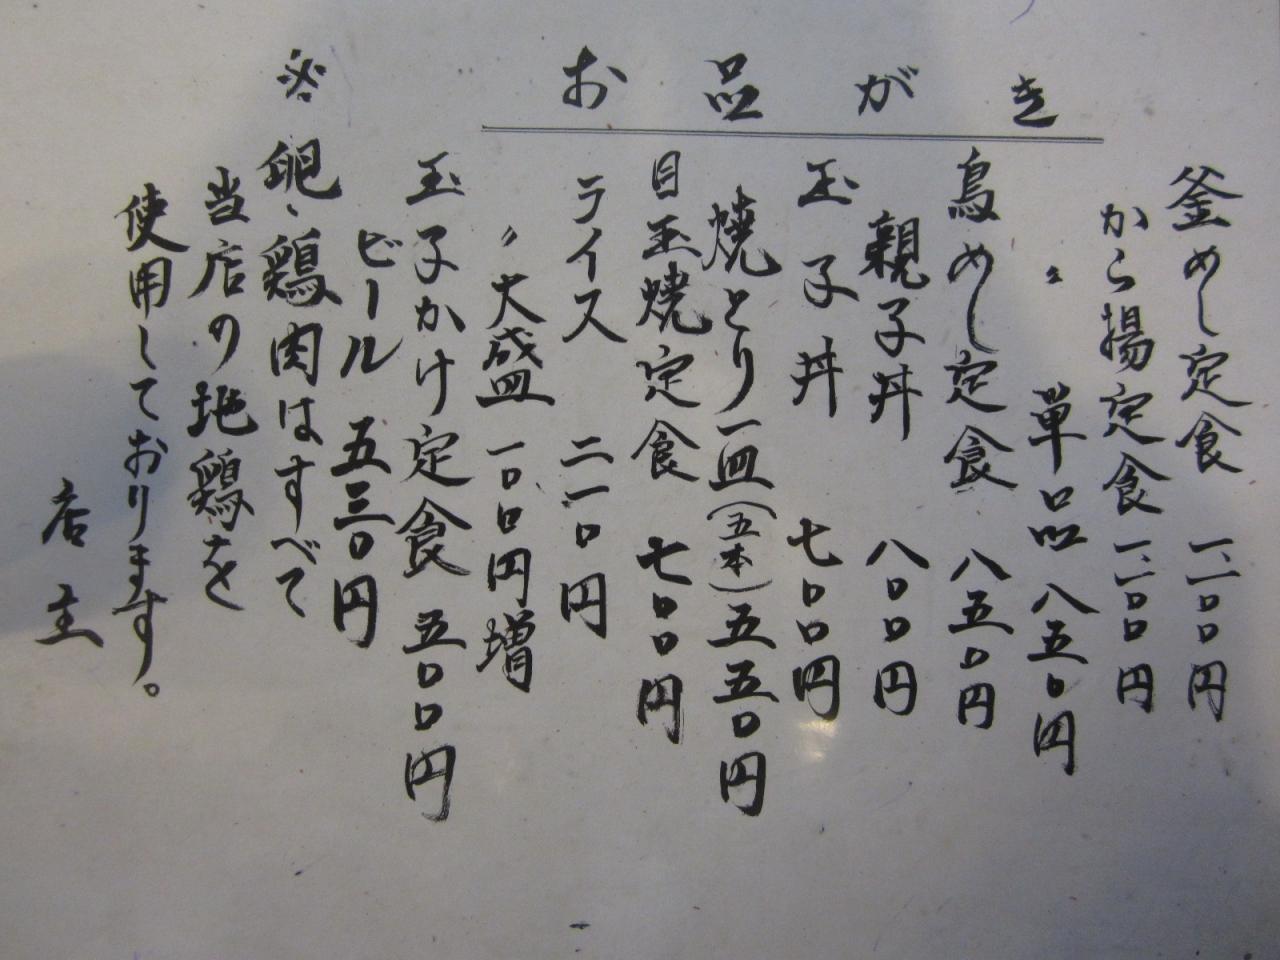 お品がき
釜めし定食 一、一〇〇円
から揚定食 一、一〇〇円
〃 単品 八五〇円
鳥めし定食 八五〇円
親子丼 八〇〇円
玉子丼 七〇〇円
焼とり一皿(五本)五五〇円
目玉焼定食 七〇〇円
ライス 二一〇円
〃 大盛 一〇〇円増
玉子かけ定食 五〇〇円
ビール 五三〇円
※ 卵、鶏肉はすべて
当店の地鶏を
使用しております。
店主